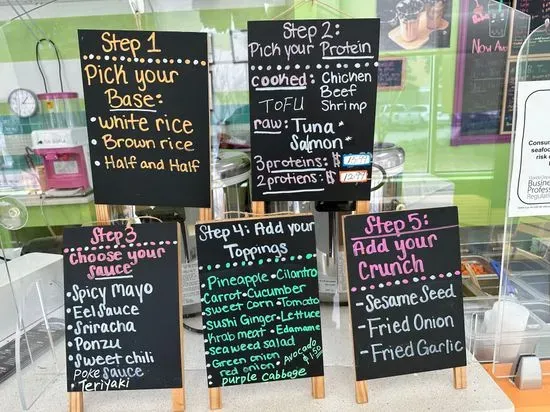 Step 1
Pick your
Base:
- white rice
- Brown rice
- Half and Half
Step 2:
Pick your Protein
cooked: Chicken
Beef
TOFU Shrimp
raw: Tuna*
Salmon*
3 proteins: $
2 protiens: $ 12.99
Step 3
choose your
sauce
• Spicy Mayo
• Eel sauce
• Sriracha
• Ponzu
• sweet chili
Poke sauce
• Teriyaki
Step 4: Add your
Toppings
• Pineapple • Cilantro
• Carrot • Cucumber
• sweet corn • Tomato
• sushi Ginger • Lettuce
• Krab meat • Edamame
• seaweed salad
• Green onion • Avocado
red onion • $1.50
purple Cabbage
Step 5:
Add your
Crunch
- Sesame Seed
- Fried Onion
- Fried Garlic
Now
Business
Profess
Regulat